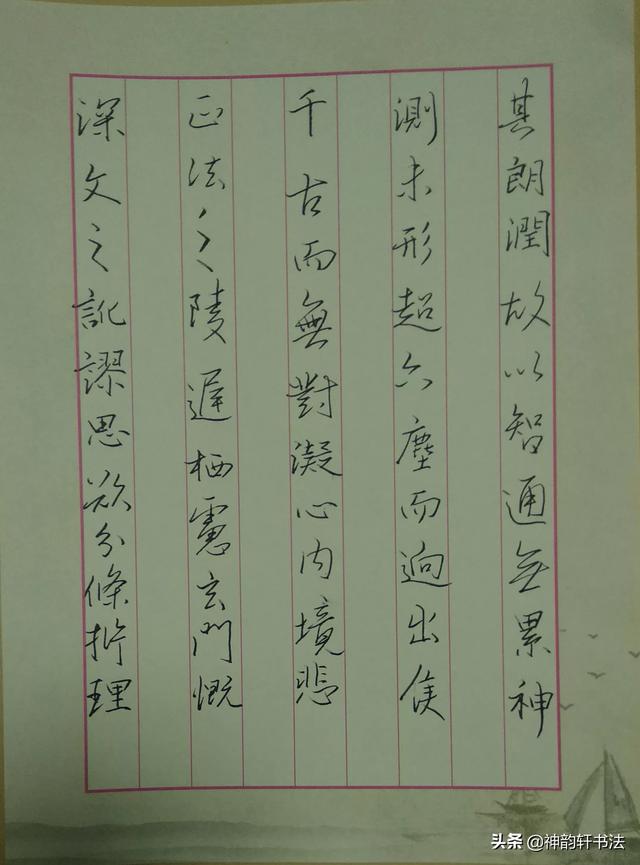 其朗潤故以智通无累神
測未形超六塵而逈出隻
千古而無對凝心内境悲
正法之陵遲栖慮玄門慨
深文之訛謬思欲分條析理
头条 @神韵轩书法